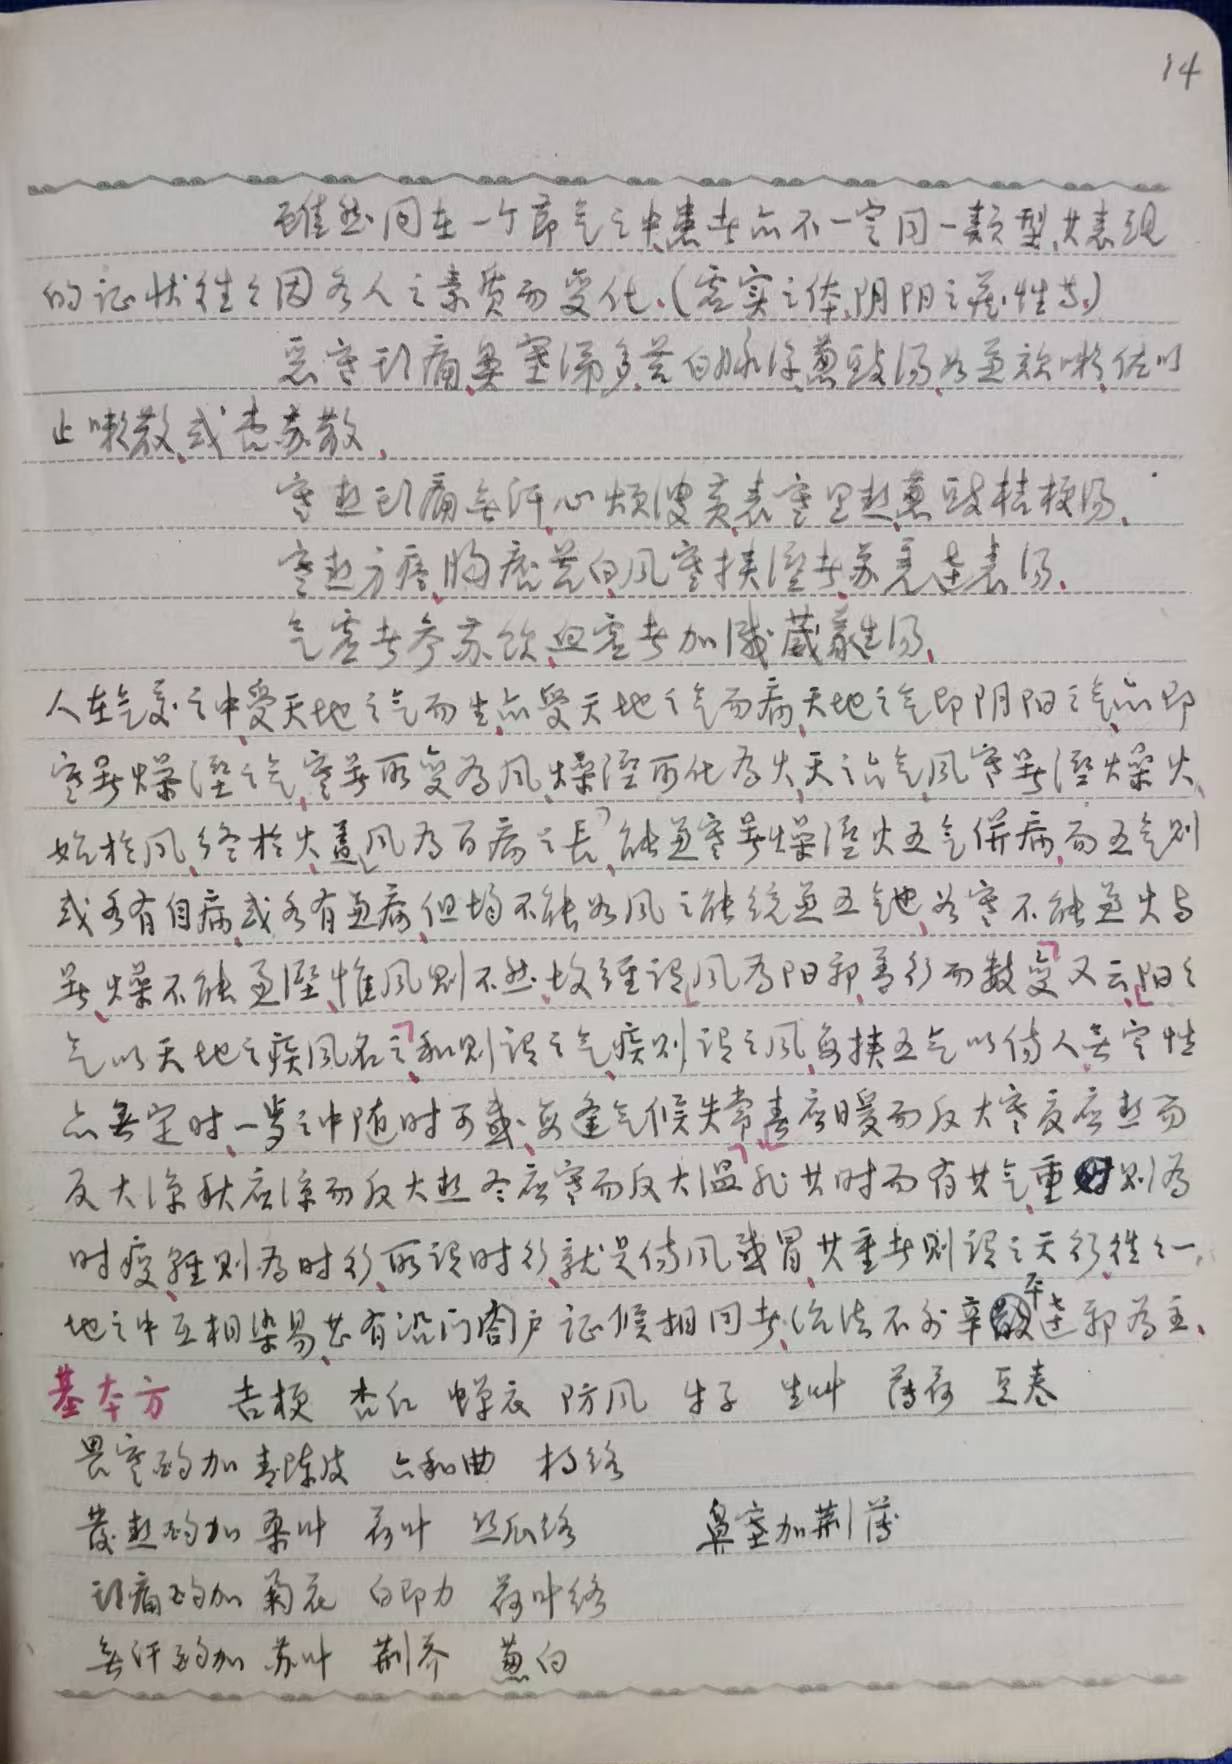 14
虽然同在一个节气之中,患者亦不一定同一类型,其表现
的证状往往因各人之素质而变化、(虚实之体,阴阳之藏性等)
恶寒头痛,鼻塞涕多,苔白脉浮,葱豉汤,如兼咳嗽,佐以
止嗽散,或杏苏散,
寒热头痛无汗,心烦溲黄,表寒里热,葱豉桔梗汤,
寒热方疼,胸痞苔白,风寒挟湿者,苏羌达表汤,
气虚者参苏饮,血虚者加减葳蕤汤,
人在气交之中,受天地之气而生,亦受天地之气而病,天地之气即阴阳之气,亦即
寒暑燥湿之气,寒暑所变为风,燥湿所化为火,天之六气,风寒暑湿燥火,
始于风,终于火,盖「风为百病之长」,能兼寒暑燥湿火五气併病,而五气则
或各有自病,或各有兼病,但均不能如风之能统兼五气也,如寒不能兼火与
暑,燥不能兼湿,惟风则不然,故经谓「风为阳邪,善行而数变」又云,「阳之
气以天地之疾风名之」,和则谓之气,疾则谓之风,每挟五气以伤人,无定性
亦无定时,一岁之中随时可感,每逢气候失常,「春应暖而反大寒,夏应热而
反大凉,秋应凉而反大热,冬应寒而反大温」,非其时而有其气,重则为
时疫,轻则为时行,所谓时行,就是伤风感冒,其重者则谓之天行,往往一
地之中互相染易,甚有沿门阖户证候相同者,治法不外辛平达邪为主、
基本方 吉梗 杏仁 蝉衣 防风 牛子 生草 薄荷 豆卷
畏寒的加 青陈皮 六和曲 桔络
发热的加 桑叶 荷叶 丝瓜络 鼻塞加荆薄
头痛的加 菊花 白即力 荷叶络
无汗的加 苏叶 荆芥 葱白